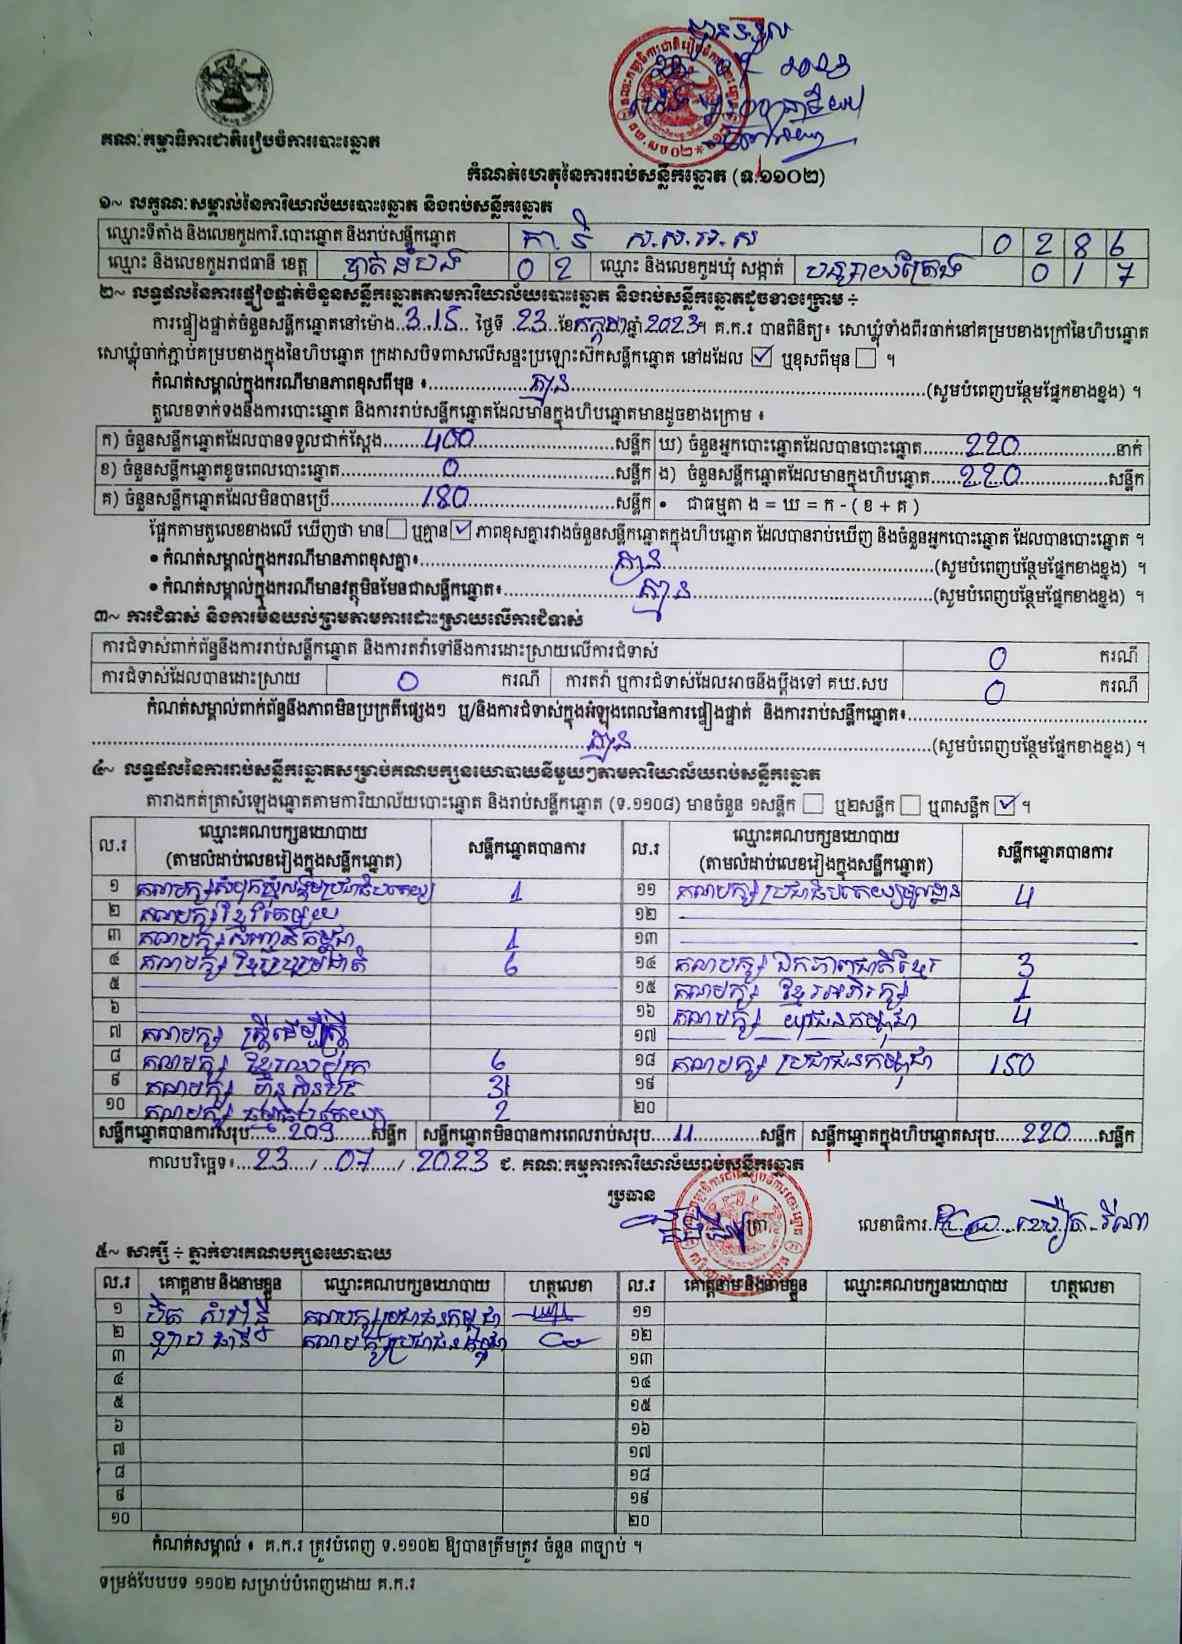 គណៈកម្មាធិការជាតិរៀបចំការបោះឆ្នោត
កំណត់ហេតុនៃការរាប់សន្លឹកឆ្នោត (ទ.១១០២)
១~ លក្ខណៈសម្គាល់នៃការិយាល័យបោះឆ្នោត និងរាប់សន្លឹកឆ្នោត
ឈ្មោះទីតាំង និងលេខកូដការិ.បោះឆ្នោត និងរាប់សន្លឹកឆ្នោត 0 2 8 6
ឈ្មោះ និងលេខកូដរាជធានី ខេត្ត បាត់ដំបង 0 2 ឈ្មោះ និងលេខកូដឃុំ សង្កាត់ 0 1 7
២~ លទ្ធផលនៃការផ្ទៀងផ្ទាត់ចំនួនសន្លឹកឆ្នោតតាមការិយាល័យបោះឆ្នោត និងរាប់សន្លឹកឆ្នោតដូចខាងក្រោម ÷
ការផ្ទៀងផ្ទាត់ចំនួនសន្លឹកឆ្នោតនៅម៉ោង 3.15 ថ្ងៃទី 23 ខែ កក្កដា ឆ្នាំ 2023 ។ គ.ក.រ បានពិនិត្យ៖ សោឃ្លុំទាំងពីរចាក់នៅគម្របខាងក្រៅនៃហិបឆ្នោត
សោឃ្លុំចាក់ភ្ជាប់គម្របខាងក្នុងនៃហិបឆ្នោត ក្រដាសបិទពាសលើសន្ទះប្រឡោះសឹកសន្លឹកឆ្នោត នៅដដែល ☑ ឬខុសពីមុន ☐ ។
កំណត់សម្គាល់ក្នុងករណីមានភាពខុសពីមុន ៖ គ្មាន (សូមបំពេញបន្ថែមផ្នែកខាងខ្នង) ។
តួលេខទាក់ទងនឹងការបោះឆ្នោត និងការរាប់សន្លឹកឆ្នោតដែលមានក្នុងហិបឆ្នោតមានដូចខាងក្រោម ៖
ក) ចំនួនសន្លឹកឆ្នោតដែលបានទទួលជាក់ស្តែង 400 សន្លឹក ឃ) ចំនួនអ្នកបោះឆ្នោតដែលបានបោះឆ្នោត 220 នាក់
ខ) ចំនួនសន្លឹកឆ្នោតខូចពេលបោះឆ្នោត 0 សន្លឹក ង) ចំនួនសន្លឹកឆ្នោតដែលមានក្នុងហិបឆ្នោត 220 សន្លឹក
គ) ចំនួនសន្លឹកឆ្នោតដែលមិនបានប្រើ 180 សន្លឹក • ជាធម្មតា ង = ឃ = ក - ( ខ + គ )
ផ្អែកតាមតួលេខខាងលើ ឃើញថា មាន ☐ ឬគ្មាន ☑ ភាពខុសគ្នារវាងចំនួនសន្លឹកឆ្នោតក្នុងហិបឆ្នោត ដែលបានរាប់ឃើញ និងចំនួនអ្នកបោះឆ្នោត ដែលបានបោះឆ្នោត ។
• កំណត់សម្គាល់ក្នុងករណីមានភាពខុសគ្នា៖ គ្មាន (សូមបំពេញបន្ថែមផ្នែកខាងខ្នង) ។
• កំណត់សម្គាល់ក្នុងករណីមានវត្ថុមិនមែនជាសន្លឹកឆ្នោត៖ គ្មាន (សូមបំពេញបន្ថែមផ្នែកខាងខ្នង) ។
៣~ ការជំទាស់ និងការមិនយល់ព្រមតាមការដោះស្រាយលើការជំទាស់
ការជំទាស់ពាក់ព័ន្ធនឹងការរាប់សន្លឹកឆ្នោត និងការតវ៉ាទៅនឹងការដោះស្រាយលើការជំទាស់ 0 ករណី
ការជំទាស់ដែលបានដោះស្រាយ 0 ករណី ការតវ៉ា ឬការជំទាស់ដែលអាចនឹងប្តឹងទៅ គឃ.សប 0 ករណី
កំណត់សម្គាល់ពាក់ព័ន្ធនឹងភាពមិនប្រក្រតីផ្សេងៗ ឬ/និងការជំទាស់ក្នុងអំឡុងពេលនៃការផ្ទៀងផ្ទាត់ និងការរាប់សន្លឹកឆ្នោត៖
គ្មាន (សូមបំពេញបន្ថែមផ្នែកខាងខ្នង) ។
៤~ លទ្ធផលនៃការរាប់សន្លឹកឆ្នោតសម្រាប់គណបក្សនយោបាយនីមួយៗតាមការិយាល័យរាប់សន្លឹកឆ្នោត
តារាងកត់ត្រាសំឡេងឆ្នោតតាមការិយាល័យបោះឆ្នោត និងរាប់សន្លឹកឆ្នោត (ទ.១១០៨) មានចំនួន ១សន្លឹក ☐ ឬ២សន្លឹក ☐ ឬ៣សន្លឹក ☑ ។
ល.រ ឈ្មោះគណបក្សនយោបាយ (តាមលំដាប់លេខរៀងក្នុងសន្លឹកឆ្នោត) សន្លឹកឆ្នោតបានការ ល.រ ឈ្មោះគណបក្សនយោបាយ (តាមលំដាប់លេខរៀងក្នុងសន្លឹកឆ្នោត) សន្លឹកឆ្នោតបានការ
១ គណបក្សសំបុកឃ្មុំសង្គមប្រជាធិបតេយ្យ 1 ១១ គណបក្ស ប្រជាធិបតេយ្យមូលដ្ឋាន 4
២ គណបក្សខ្មែរតែមួយ ១២
៣ គណបក្ស 1 ១៣
៤ គណបក្ស 6 ១៤ គណបក្ស ឯកភាពជាតិខ្មែរ 3
៥ ១៥ គណបក្ស ខ្មែរអភិរក្ស 1
៦ ១៦ គណបក្ស យុវជនកម្ពុជា 4
៧ គណបក្ស ស្ត្រីដើម្បីស្ត្រី ១៧
៨ គណបក្ស ខ្មែរឈប់ក្រ 6 ១៨ គណបក្ស ប្រជាជនកម្ពុជា 150
៩ គណបក្ស ហ៊្វុនស៊ិនប៉ិច 31 ១៩
១០ គណបក្ស ធម្មាធិបតេយ្យ 2 ២០
សន្លឹកឆ្នោតបានការសរុប 209 សន្លឹក សន្លឹកឆ្នោតមិនបានការពេលរាប់សរុប 11 សន្លឹក សន្លឹកឆ្នោតក្នុងហិបឆ្នោតសរុប 220 សន្លឹក
កាលបរិច្ឆេទ៖ 23 / 07 / 2023 ជ. គណៈកម្មការការិយាល័យរាប់សន្លឹកឆ្នោត
ប្រធាន
លេខាធិការ
៥~ សាក្សី ÷ ភ្នាក់ងារគណបក្សនយោបាយ
ល.រ គោត្តនាម និងនាមខ្លួន ឈ្មោះគណបក្សនយោបាយ ហត្ថលេខា ល.រ គោត្តនាម និងនាមខ្លួន ឈ្មោះគណបក្សនយោបាយ ហត្ថលេខា
១ គណបក្សប្រជាជនកម្ពុជា ១១
២ គណបក្សប្រជាជនកម្ពុជា ១២
៣ ១៣
៤ ១៤
៥ ១៥
៦ ១៦
៧ ១៧
៨ ១៨
៩ ១៩
១០ ២០
កំណត់សម្គាល់ ៖ គ.ក.រ ត្រូវបំពេញ ទ.១១០២ ឱ្យបានត្រឹមត្រូវ ចំនួន ៣ច្បាប់ ។
ទម្រង់បែបបទ ១១០២ សម្រាប់បំពេញដោយ គ.ក.រ